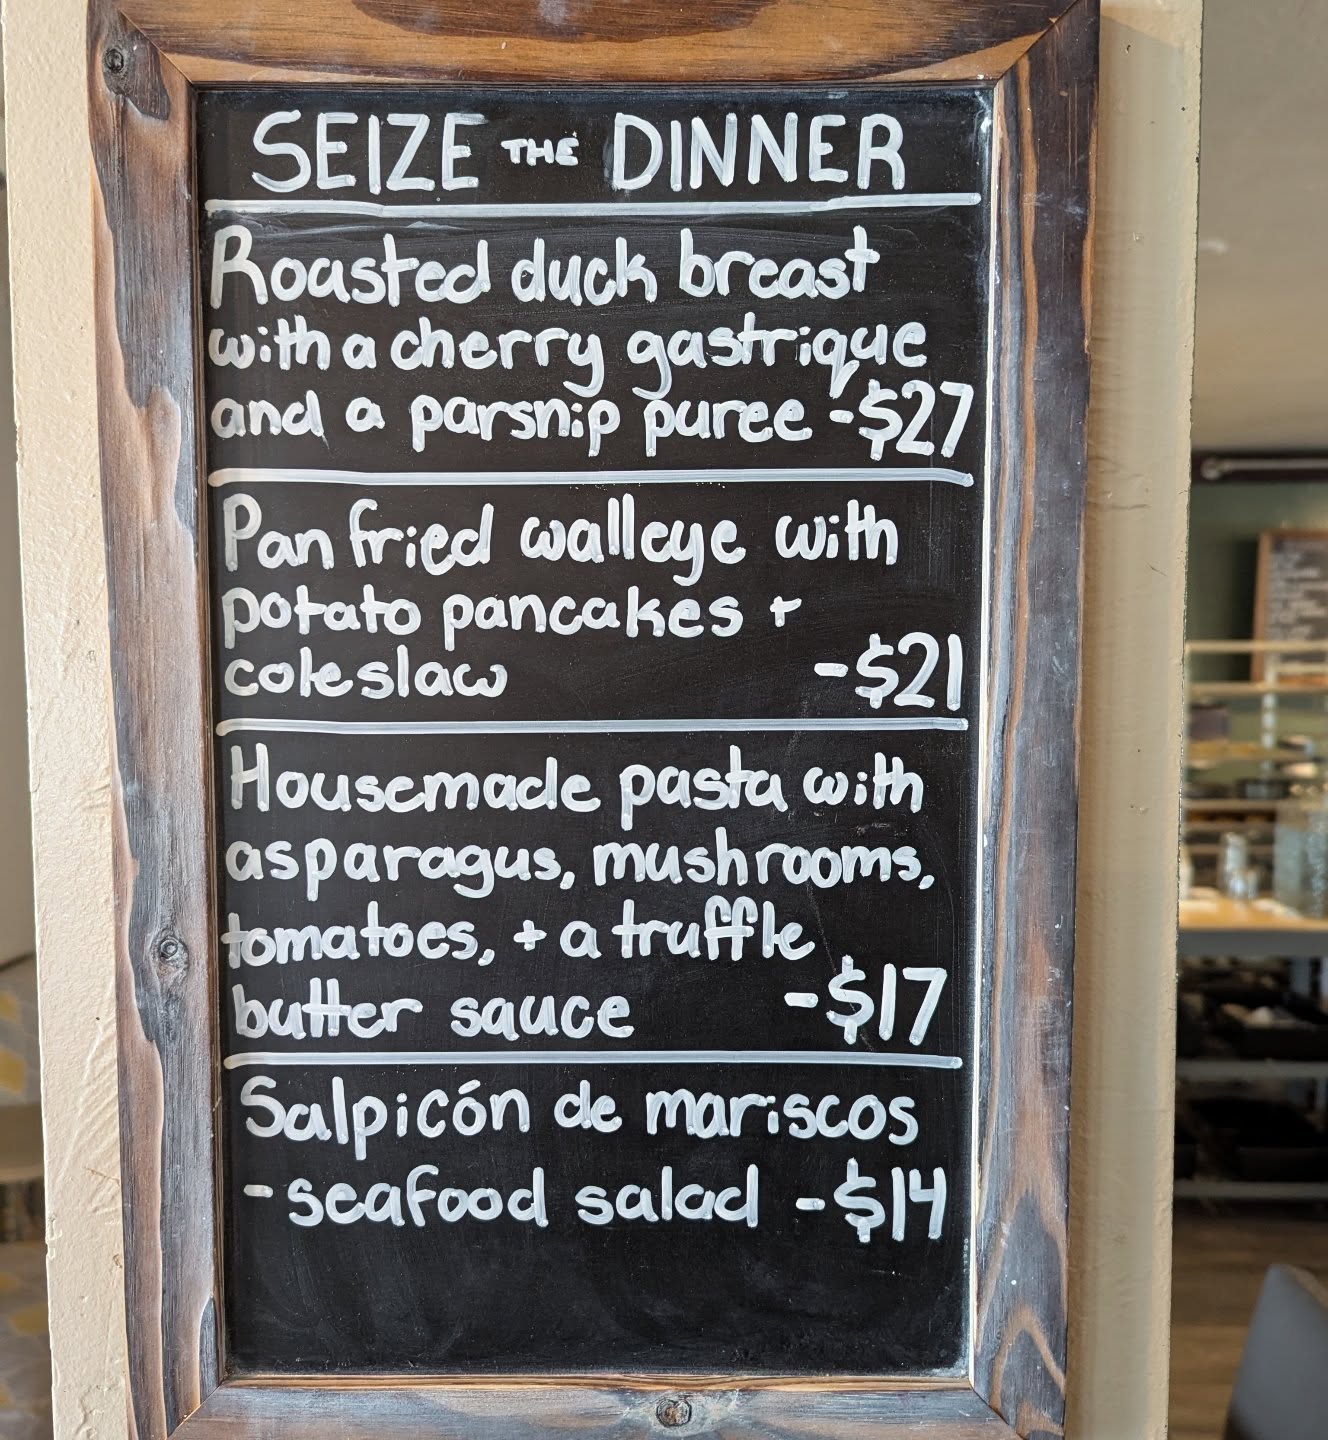 SEIZE THE DINNER
Roasted duck breast
with a cherry gastrique
and a parsnip puree -$27
Pan fried walleye with
potato pancakes +
coleslaw -$21
Housemade pasta with
asparagus, mushrooms,
tomatoes, + a truffle
butter sauce -$17
Salpicón de mariscos
- seafood salad -$14